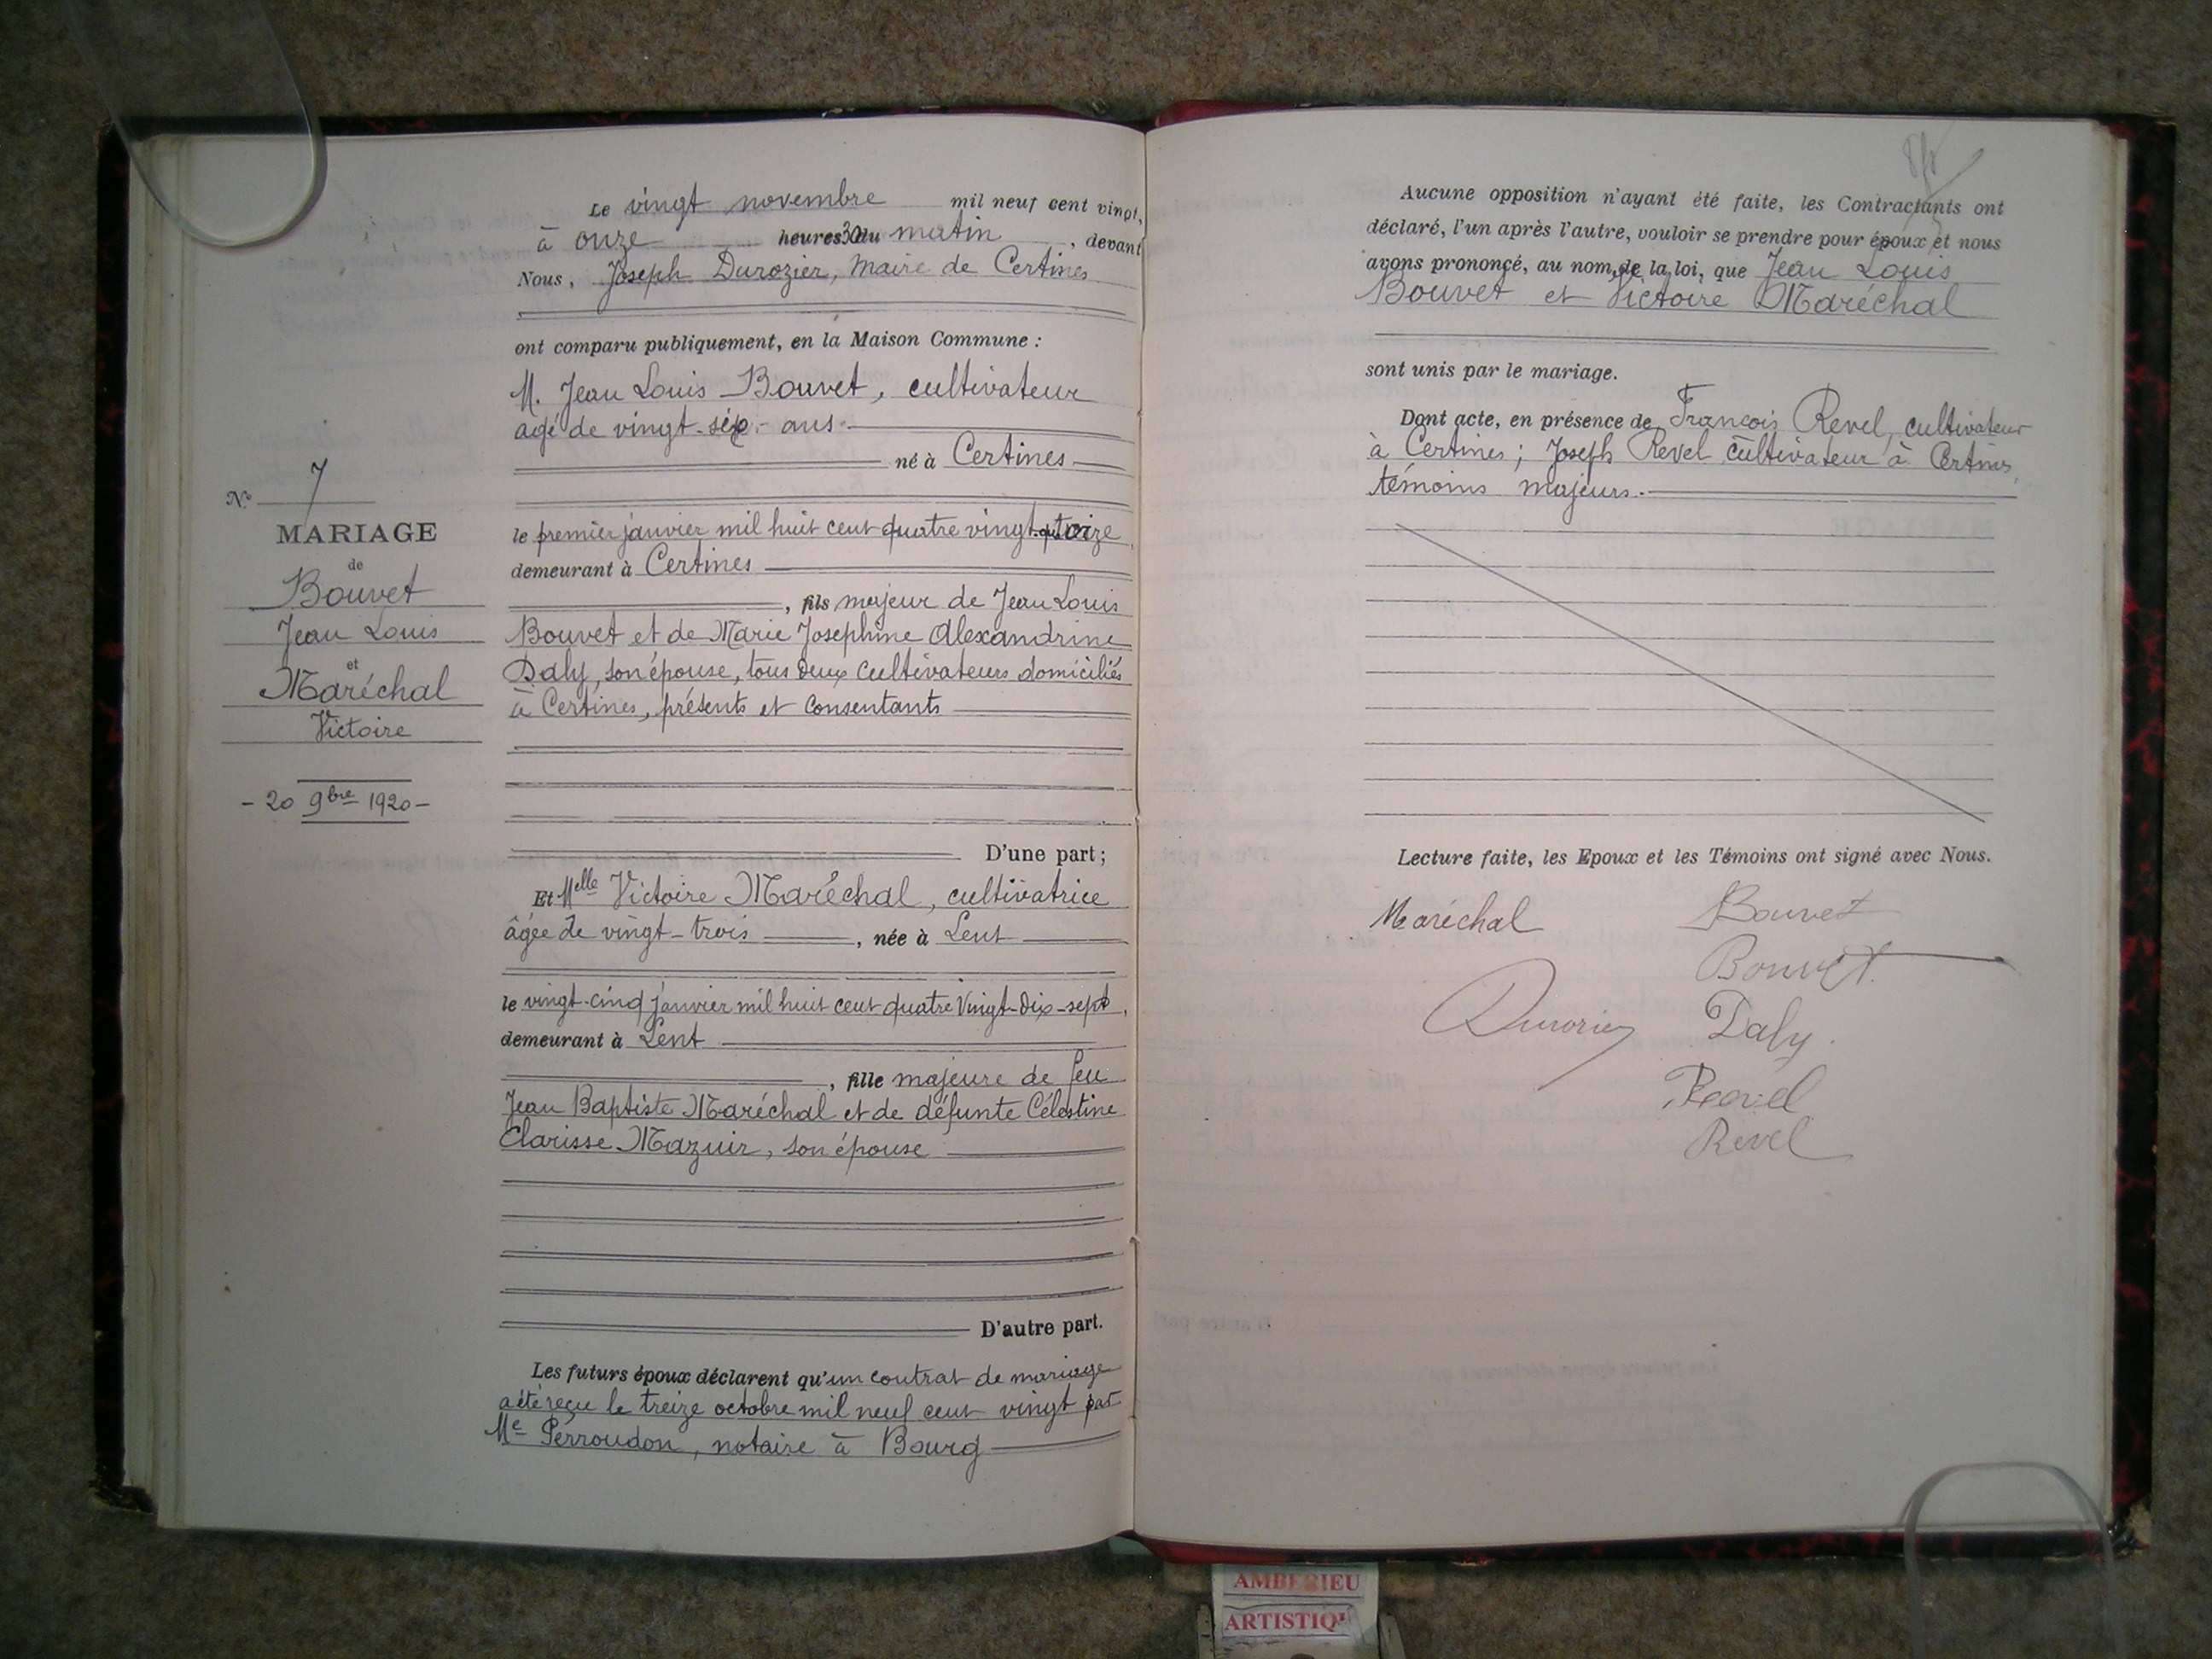 Le vingt novembre mil neuf cent vingt,
à onze heures 30 du matin, devant
Nous, Joseph Durozier, Maire de Certines
ont comparu publiquement, en la Maison Commune :
M. Jean Louis Bouvet, cultivateur
agé de vingt-six - ans -
né à Certines
le premier janvier mil huit cent quatre vingt-
demeurant à Certines
, fils majeur de Jean Louis
Bouvet et de Marie Josephine Alexandrine
Daly, son épouse, tous deux cultivateurs domiciliés
à Certines, présents et consentants
D'une part ;
Et Melle Victoire Maréchal, cultivatrice
âgée de vingt-trois, née à Lent
le vingt-cinq janvier mil huit cent quatre vingt-dix-sept,
demeurant à Lent
, fille majeure de feu
Jean Baptiste Maréchal et de défunte Célestine
Clarisse Mazuir, son épouse
D'autre part.
Les futurs époux déclarent qu'un contrat de mariage
a été reçu le treize octobre mil neuf cent vingt par
Me Perroudon, notaire à Bourg
N° 7
MARIAGE
de
Bouvet
Jean Louis
et
Maréchal
Victoire
- 20 9bre 1920 -
Aucune opposition n'ayant été faite, les Contractants ont
déclaré, l'un après l'autre, vouloir se prendre pour époux et nous
avons prononcé, au nom de la loi, que Jean Louis
Bouvet et Victoire Maréchal
sont unis par le mariage.
Dont acte, en présence de François Revel, cultivateur
à Certines ; Joseph Revel cultivateur à Certines,
témoins majeurs.
Lecture faite, les Epoux et les Témoins ont signé avec Nous.
Maréchal Bouvet
Bouvet
Durozier Daly
Revel
Revel
AMBERIEU
ARTISTIQU